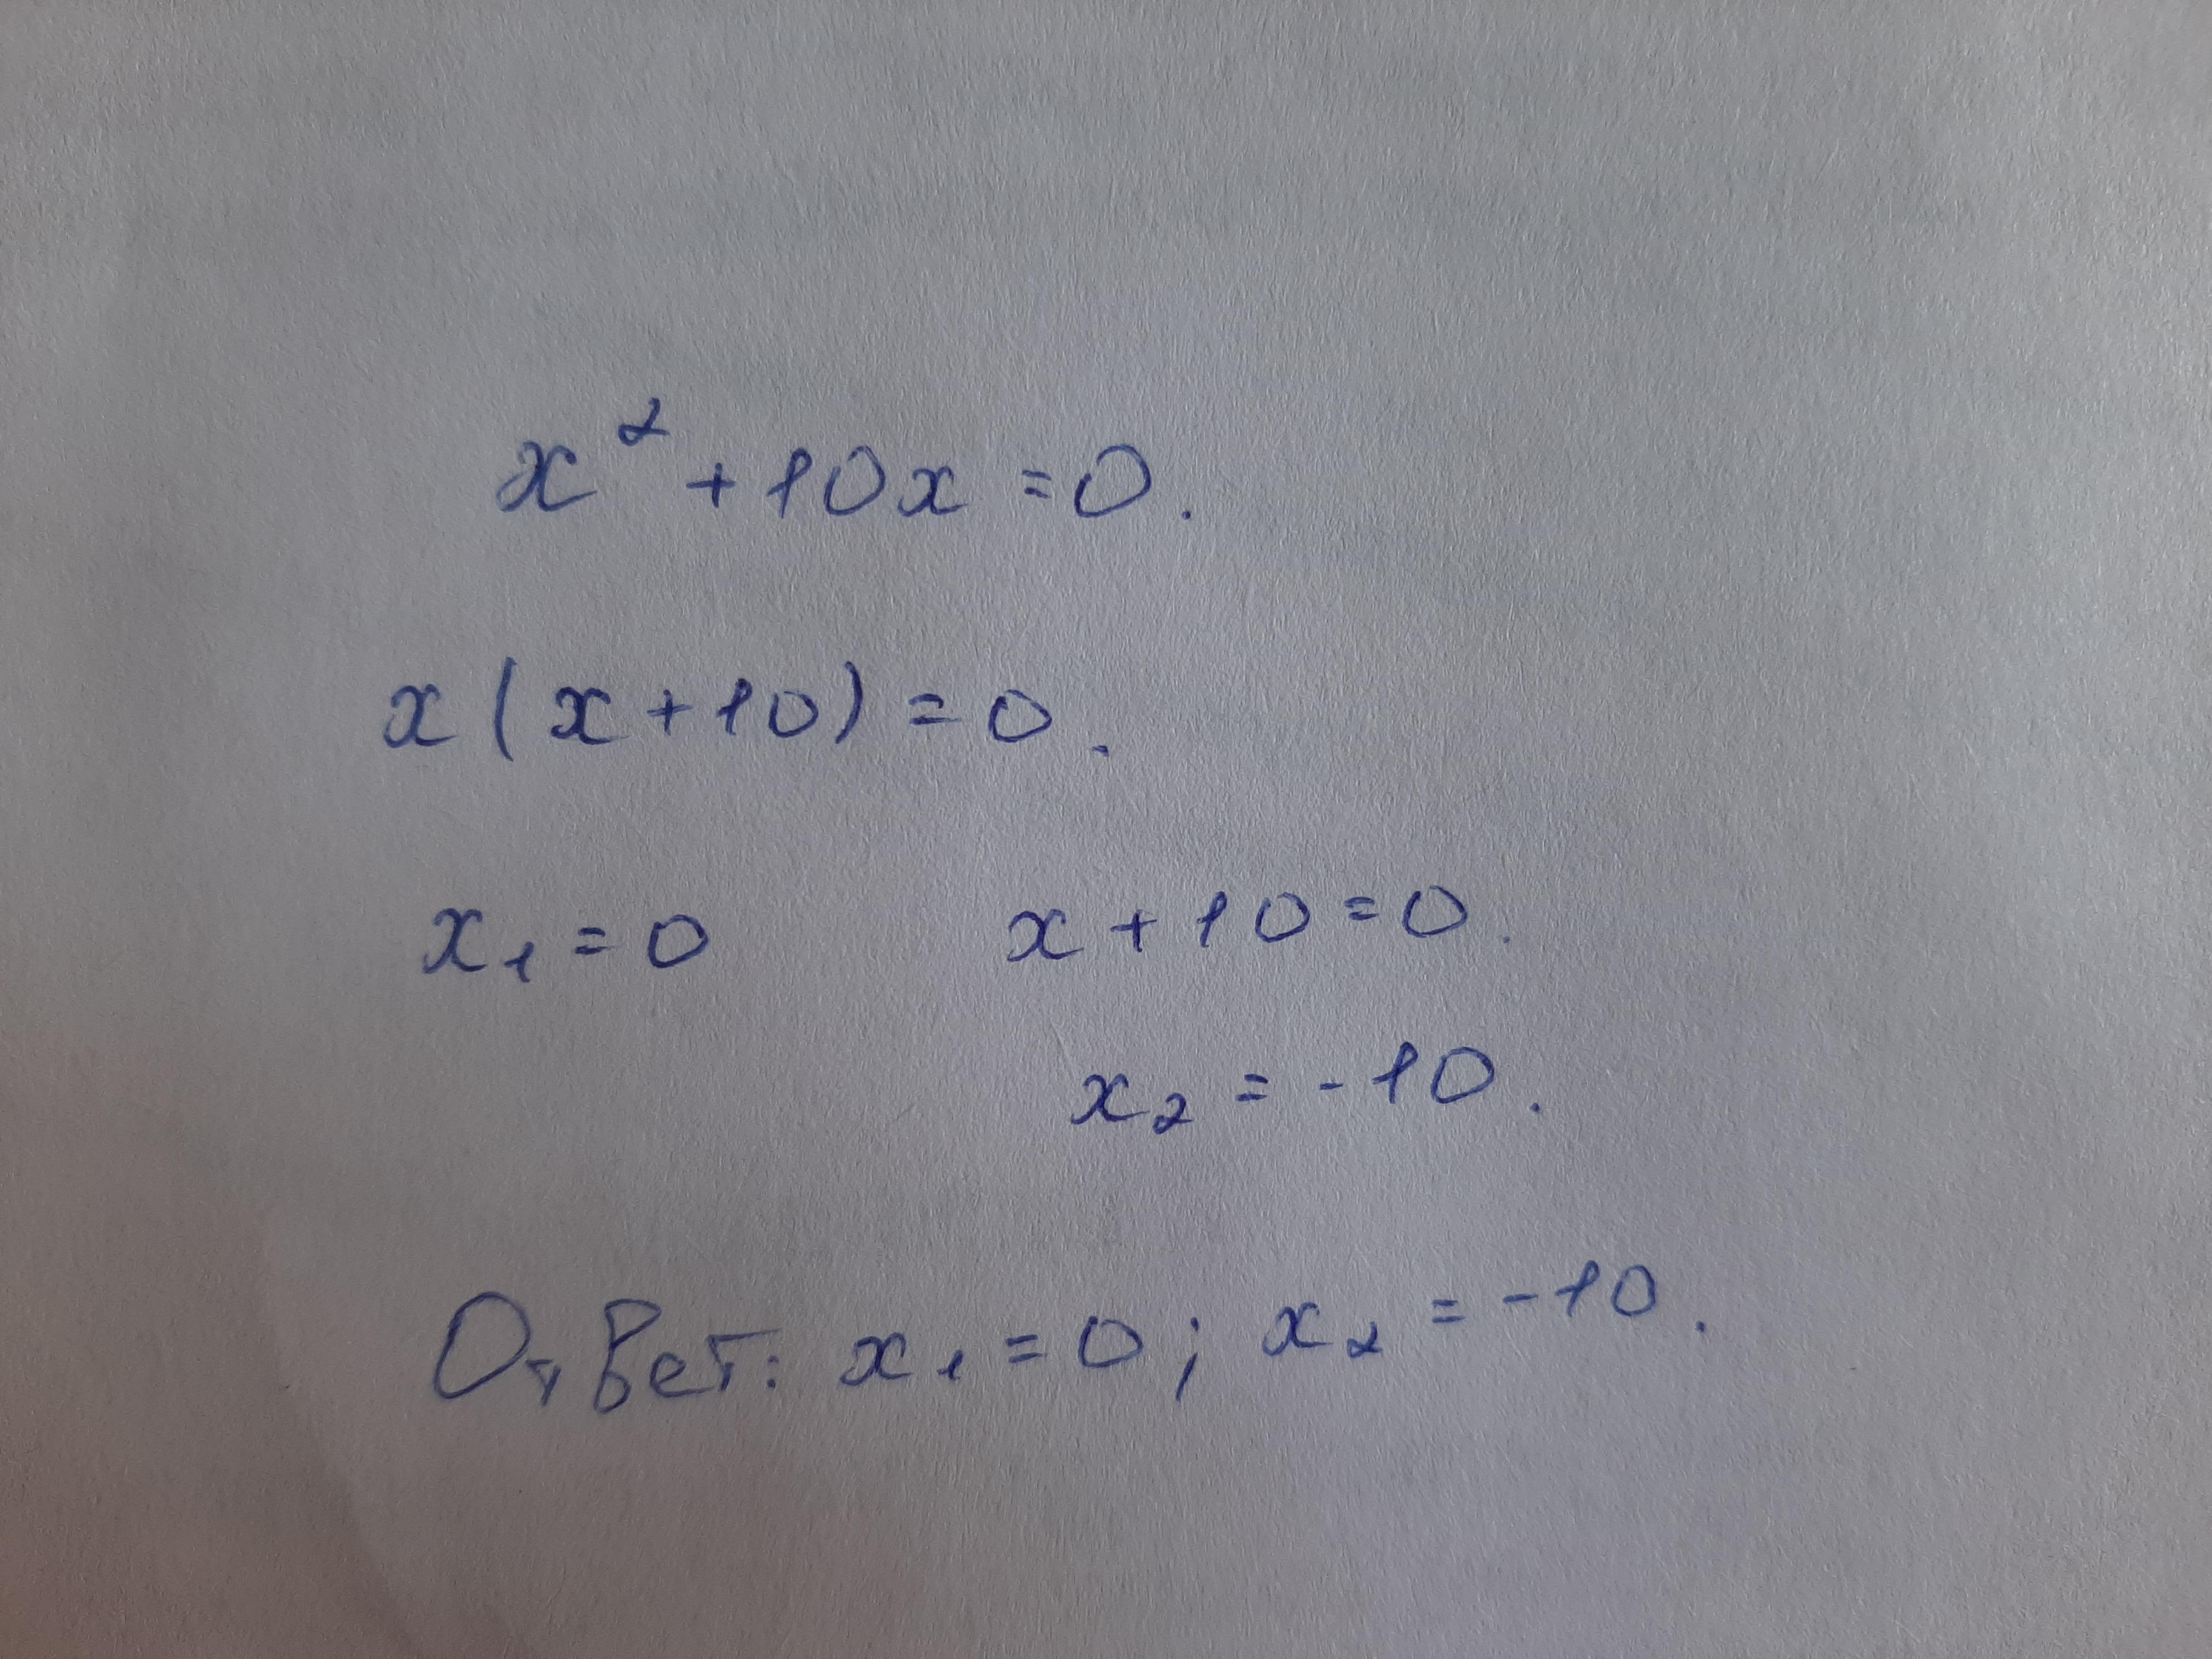 x² + 10x = 0.
x(x + 10) = 0.
x₁ = 0 x + 10 = 0.
x₂ = -10.
Ответ: x₁ = 0; x₂ = -10.